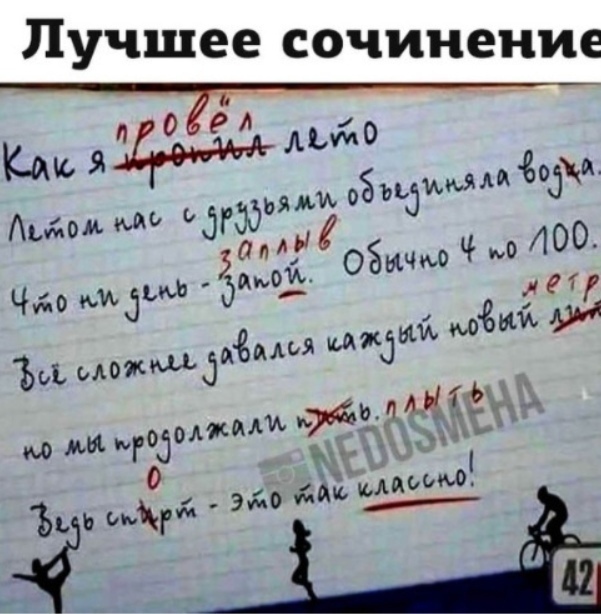 Лучшее сочинение
провёл
Как я пропил лето
Летом нас с друзьями объединяла водка.
заплыв
Что ни день - запой. Обычно 4 по 100.
метр
Всё сложнее давался каждый новый
но мы продолжали пить. плыть
о
Ведь спирт - это так классно!
NEDOSMEHA
42